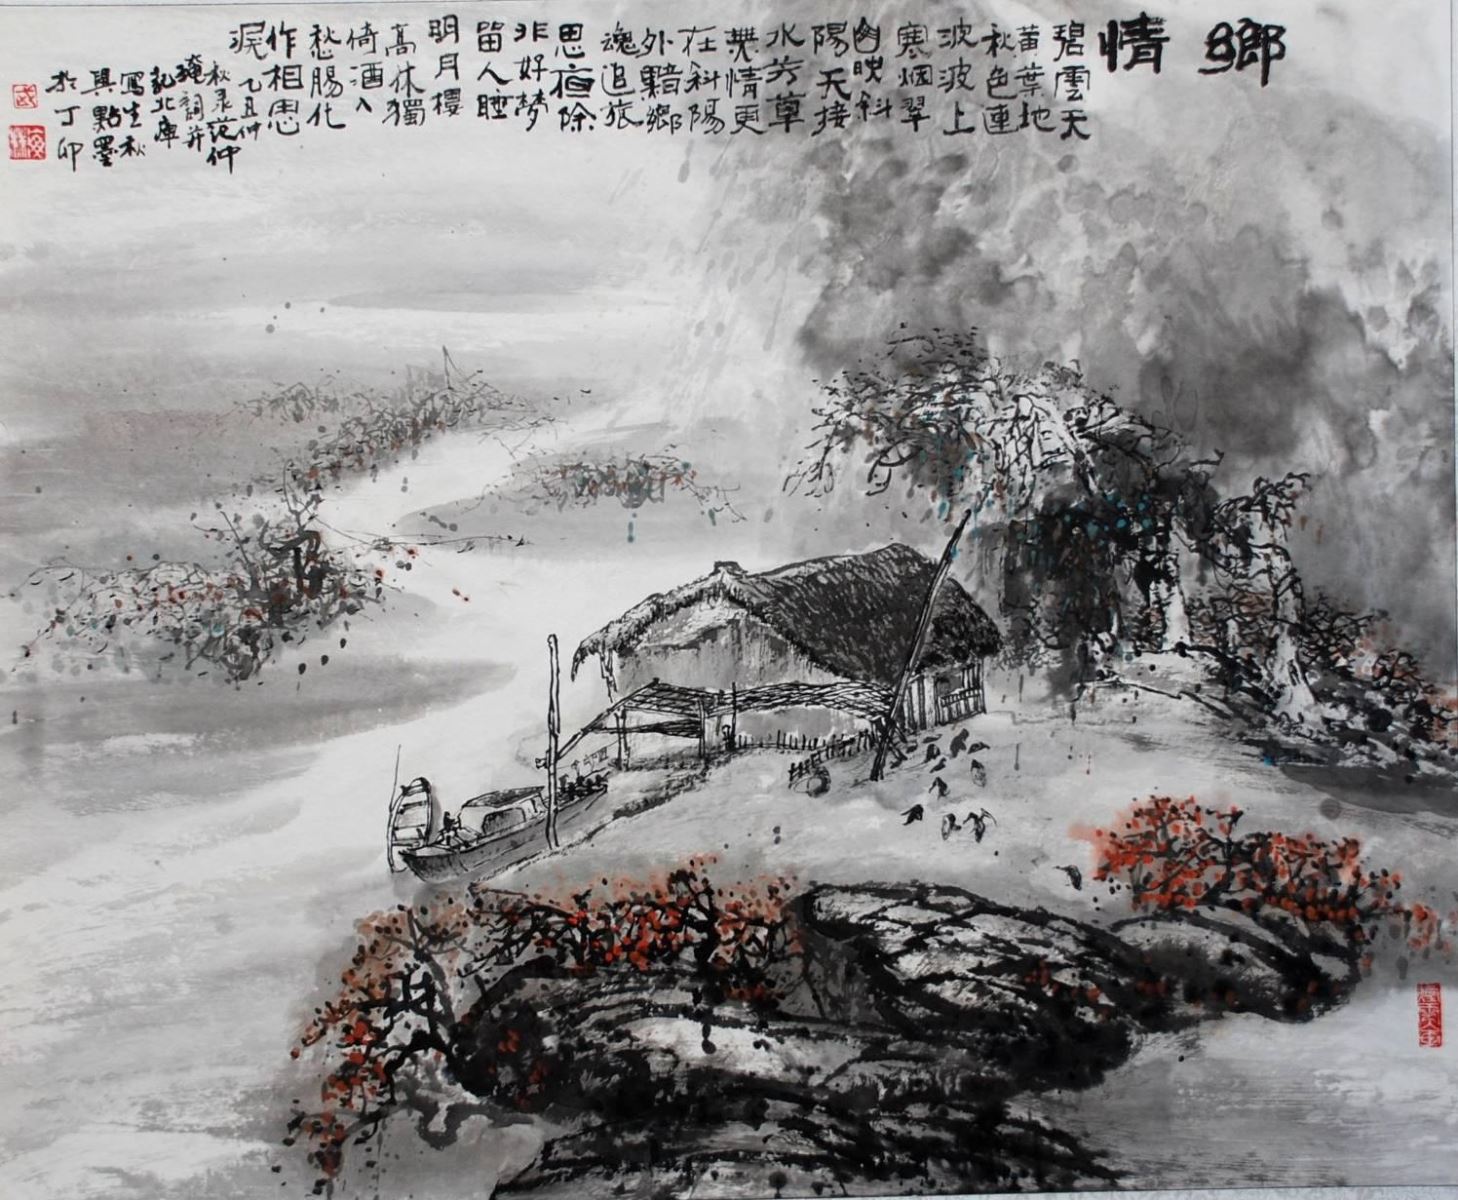 鄉情
碧雲天
黃葉地
秋色連
波波上
寒烟翠
山映斜
陽天接
水芳草
無情更
在斜陽
外黯鄉
魂追旅
思夜除
非好夢
留人睡
明月樓
高休獨
倚酒入
愁腸化
作相思
淚乙丑仲
秋录范仲
淹詞并
記北庫
寫生秋
興點墨
於丁卯